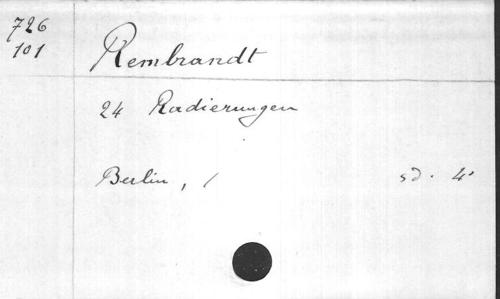 726
101
Rembrandt
24 Radierungen
Berlin, / sd. 4°